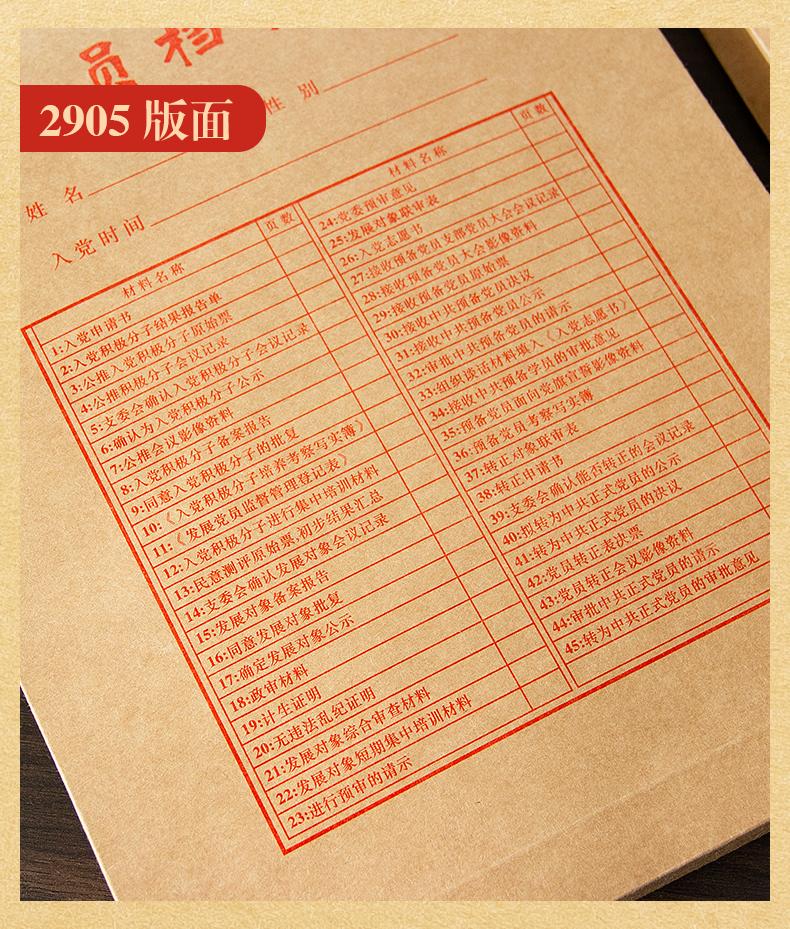 员档
2905 版面
性 别
姓 名
入党时间
材料名称 页数
1:入党申请书
2:入党积极分子结果报告单
3:公推入党积极分子原始票
4:公推积极分子会议记录
5:支委会确认入党积极分子会议记录
6:确认为入党积极分子公示
7:公推会议影像资料
8:入党积极分子备案报告
9:同意入党积极分子的批复
10:《入党积极分子培养考察写实簿》
11:《发展党员监督管理登记表》
12:入党积极分子进行集中培训材料
13:民意测评原始票,初步结果汇总
14:支委会确认发展对象会议记录
15:发展对象备案报告
16:同意发展对象批复
17:确定发展对象公示
18:政审材料
19:计生证明
20:无违法乱纪证明
21:发展对象综合审查材料
22:发展对象短期集中培训材料
23:进行预审的请示
材料名称 页数
24:党委预审意见
25:发展对象联审表
26:入党志愿书
27:接收预备党员支部党员大会会议记录
28:接收预备党员大会影像资料
29:接收预备党员原始票
30:接收中共预备党员决议
31:接收中共预备党员公示
32:审批中共预备党员的请示
33:组织谈话材料填入《入党志愿书》
34:接收中共预备学员的审批意见
35:预备党员面向党旗宣誓影像资料
36:预备党员考察写实簿
37:转正对象联审表
38:转正申请书
39:支委会确认能否转正的会议记录
40:拟转为中共正式党员的公示
41:转为中共正式党员的决议
42:党员转正表决票
43:党员转正会议影像资料
44:审批中共正式党员的请示
45:转为中共正式党员的审批意见